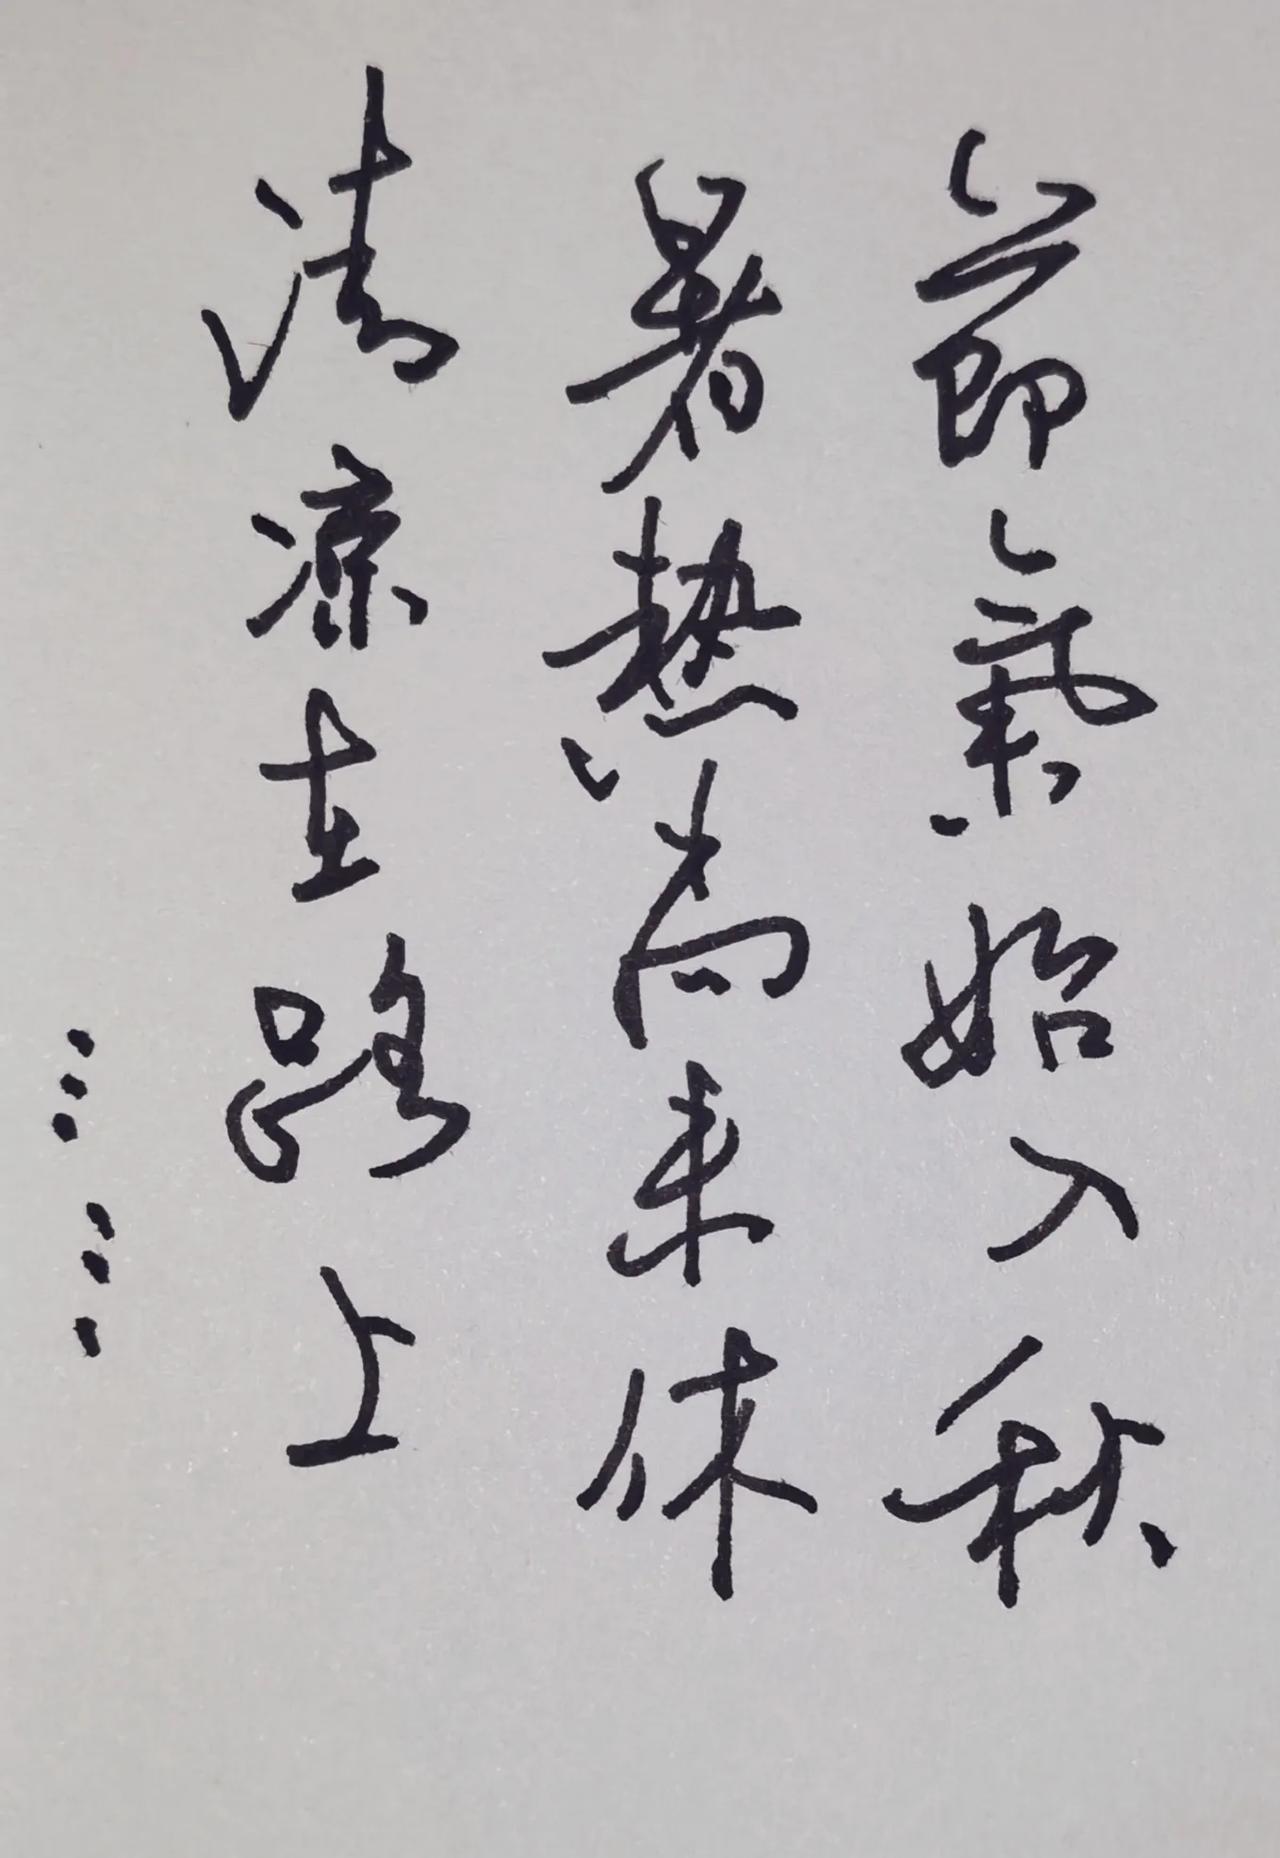 節氣始入秋
暑熱尚未休
清凉在路上
……